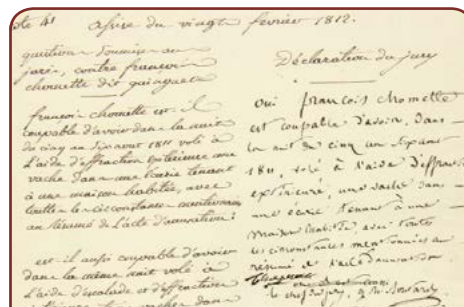 ote 41 assise du vingt fevrier 1812.
question soumise au
jury, contre francois
chomette dit guinguet
françois chomette est-il
coupable d'avoir dans la nuit
du cinq au six aout 1811 volé à
l'aide d'effraction extérieure une
vache dans une écurie tenant
à une maison habitée, avec
toutes les circonstances mentionnées
au résumé de l'acte d'accusation?
est-il aussi coupable d'avoir
dans la même nuit volé à
l'aide d'escalade et d'effraction
vache dans
Déclaration du jury
oui françois chomette
est coupable d'avoir, dans
la nuit de cinq au six aout
1811, volé à l'aide d'effraction
extérieure, une vache dans
une écurie tenant à une
maison habitée, avec toutes
les circonstances mentionnées au
résumé de l'acte d'accusation
le chef du jury